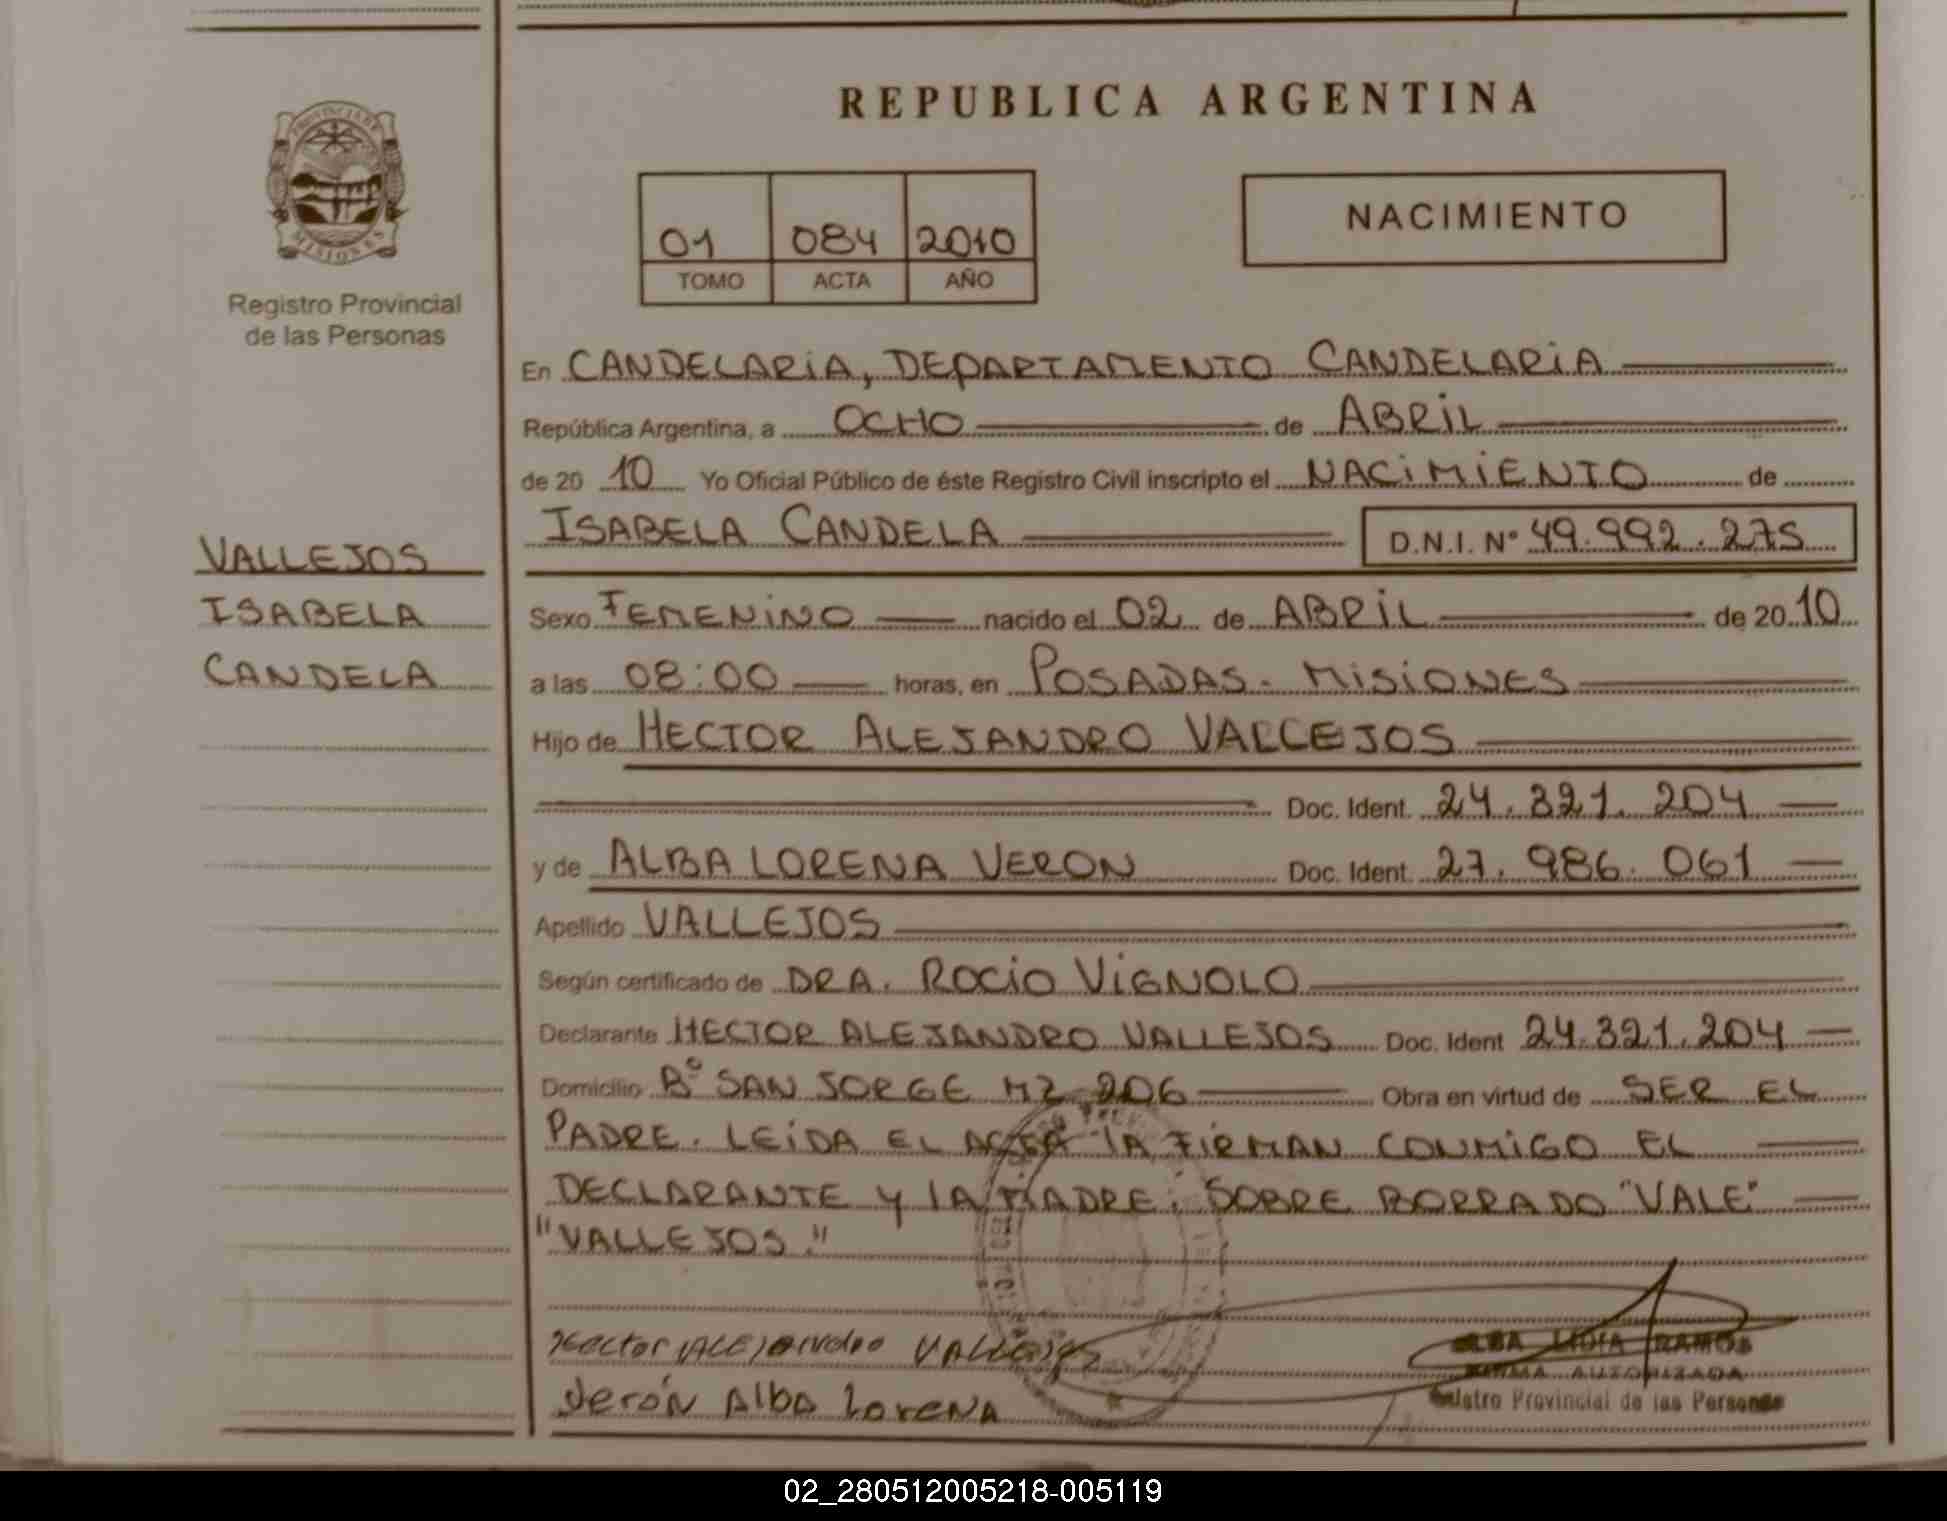 REPUBLICA ARGENTINA
PROVINCIA DE
MISIONES
Registro Provincial
de las Personas
01 084 2010
TOMO ACTA AÑO
NACIMIENTO
En CANDELARIA, DEPARTAMENTO CANDELARIA
República Argentina, a OCHO de ABRIL
de 20 10 Yo Oficial Público de éste Registro Civil inscripto el NACIMIENTO de
ISABELA CANDELA D.N.I. Nº 49.992.275
VALLEJOS
ISABELA
CANDELA
Sexo FEMENINO nacido el 02 de ABRIL de 20 10
a las 08:00 horas, en POSADAS - MISIONES
Hijo de HECTOR ALEJANDRO VALLEJOS
Doc. Ident. 24.321.204
y de ALBA LORENA VERON Doc. Ident. 27.986.061
Apellido VALLEJOS
Según certificado de DRA. ROCIO VIGNOLO
Declarante HECTOR ALEJANDRO VALLEJOS Doc. Ident 24.321.204
Domicilio Bº SAN JORGE MZ 206 Obra en virtud de SER EL
PADRE. LEIDA EL ACTA LA FIRMAN CONMIGO EL
DECLARANTE Y LA MADRE: SOBRE BORRADO "VALE"
"VALLEJOS."
Hector Alejandro Vallejos
Verón Alba Lorena
ALBA LIDIA RAMOS
FIRMA AUTORIZADA
Provincial de las Personas
02_280512005218-005119